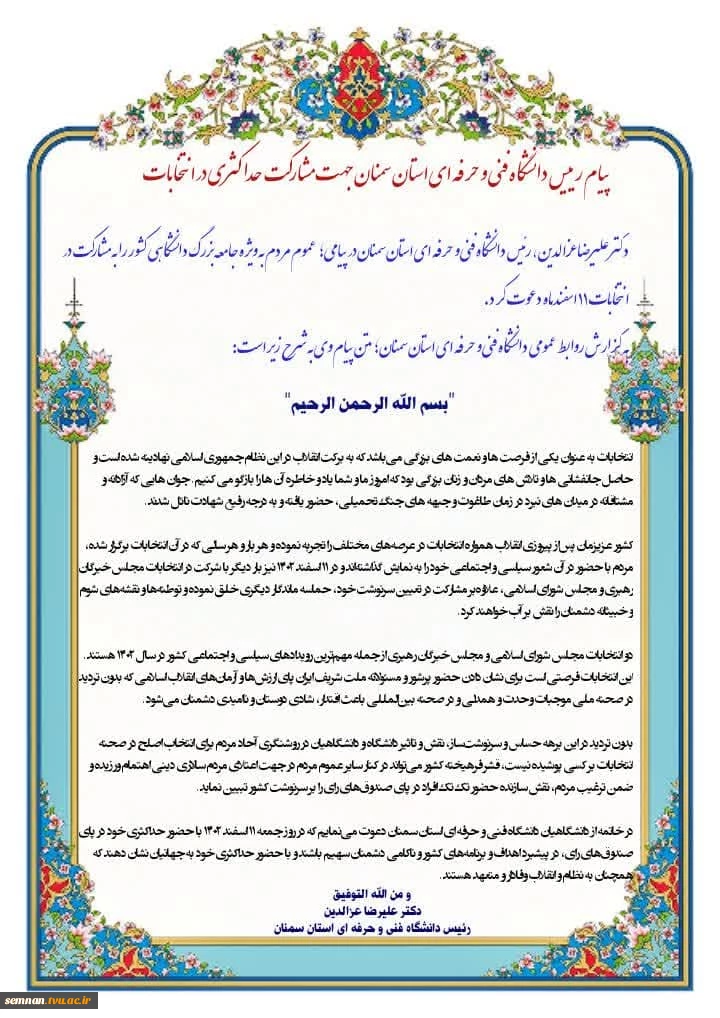 پیام رییس دانشگاه فنی و حرفه ای استان سمنان جهت مشارکت حداکثری در انتخابات
دکتر علیرضا عزالدین، رئیس دانشگاه فنی و حرفه ای استان سمنان در پیامی؛ عموم مردم به ویژه جامعه بزرگ دانشگاهی کشور را به مشارکت در
انتخابات ۱۱ اسفندماه دعوت کرد.
به گزارش روابط عمومی دانشگاه فنی و حرفه ای استان سمنان؛ متن پیام وی به شرح زیر است:
"بسم الله الرحمن الرحیم"
انتخابات به عنوان یکی از فرصت ها و نعمت های بزرگی می باشد که به برکت انقلاب در این نظام جمهوری اسلامی نهادینه شده است و
حاصل جانفشانی ها و تلاش های مردان و زنان بزرگی بود که امروز ما و شما یاد و خاطره آن ها را بازگو می کنیم. جوان هایی که آزادانه و
مشتاقانه در میدان های نبرد در زمان طاغوت و جبهه های جنگ تحمیلی، حضور یافته و به درجه رفیع شهادت نائل شدند.
کشور عزیزمان پس از پیروزی انقلاب همواره انتخابات در عرصه‌های مختلف را تجربه نموده و هر بار و هر سالی که در آن انتخابات برگزار شده،
مردم با حضور در آن شعور سیاسی و اجتماعی خود را به نمایش گذاشته‌اند و در ۱۱ اسفند ۱۴۰۲ نیز بار دیگر با شرکت در انتخابات مجلس خبرگان
رهبری و مجلس شورای اسلامی، علاوه بر مشارکت در تعیین سرنوشت خود، حماسه ماندگار دیگری خلق نموده و توطئه‌ها و نقشه‌های شوم
و خبیثانه دشمنان را نقش بر آب خواهند کرد.
دو انتخابات مجلس شورای اسلامی و مجلس خبرگان رهبری از جمله مهم‌ترین رویدادهای سیاسی و اجتماعی کشور در سال ۱۴۰۲ هستند.
این انتخابات فرصتی است برای نشان دادن حضور پرشور و مسئولانه ملت شریف ایران پای ارزش‌ها و آرمان‌های انقلاب اسلامی که بدون تردید
در صحنه ملی موجبات وحدت و همدلی و در صحنه بین‌المللی باعث اقتدار، شادی دوستان و ناامیدی دشمنان می‌شود.
بدون تردید در این برهه حساس و سرنوشت‌ساز، نقش و تاثیر دانشگاه و دانشگاهیان در روشنگری آحاد مردم برای انتخاب اصلح در صحنه
انتخابات بر کسی پوشیده نیست، قشر فرهیخته کشور می‌تواند در کنار سایر عموم مردم در جهت اعتلای مردم سالاری دینی اهتمام ورزیده و
ضمن ترغیب مردم، نقش سازنده حضور تک تک افراد در پای صندوق‌های رای را بر سرنوشت کشور تبیین نماید.
در خاتمه از دانشگاهیان دانشگاه فنی و حرفه ای استان سمنان دعوت می‌نمایم که در روز جمعه ۱۱ اسفند ۱۴۰۲ با حضور حداکثری خود در پای
صندوق‌های رای، در پیشبرد اهداف و برنامه‌های کشور و ناکامی دشمنان سهیم باشند و با حضور حداکثری خود به جهانیان نشان دهند که
همچنان به نظام و انقلاب وفادار و متعهد هستند.
و من الله التوفیق
دکتر علیرضا عزالدین
رئیس دانشگاه فنی و حرفه ای استان سمنان
semnan.tvu.ac.ir